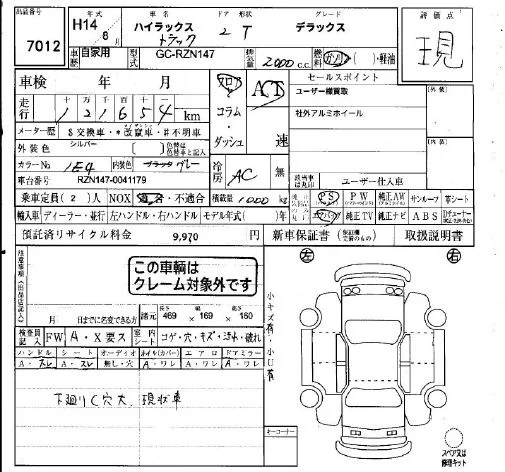 出品番号 年式 車名 ドア 形状 グレード 評価点
7012 H14 8月 ハイラックス トラック 2 T デラックス 現
車歴 自家用 型式 GC-RZN147 排気量 2000 c.c. 燃料 ガソリン ( )・軽油
車検 年 月 フロア AT セールスポイント
走行 十 万 千 百 十 一 コラム ユーザー様買取
121654 km ダッシュ 速 社外アルミホイール
メーター歴 $交換車・*改竄車・#不明車
外装色 シルバー 色替は色替車と記入
カラーNo 1E4 内装色 ブラック グレー 冷房 AC 無
車台番号 RZN147-0041179 該当車は丸印 ユーザー仕入車
乗車定員 ( 2 ) 人 NOX 適合・不適合 積載量 1000 kg PS PW 純正AW サンルーフ 革シート
輸入車 ディーラー・並行 左ハンドル・右ハンドル モデル年式 ( ) 年 エアバッグ 純正TV 純正ナビ ABS
預託済リサイクル料金 9,970 円 新車保証書 取扱説明書
注意事項 この車輌は
クレーム対象外です
左 右
月 日までに名変できる方 諸元 長さ 469 × 幅 169 × 高さ 160
小キズ有・小U有
検査員記入 FW A・X要ス 室内シート コゲ・穴・キズ・汚れ・破れ
ハンドル シート オーディオ ホイル(カバー) エアロ ドアミラー
A・スレ A・スレ 無し・穴 A・ワレ A・ワレ A・ワレ
下廻りC穴大、現状車
キーコーナー
スペア又は
修理キット